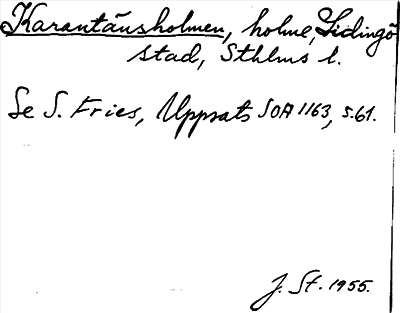 Karantänsholmen, holme, Lidingö
stad, Sthlms l.
Se S. Fries, Uppsats SOA 1163, s. 61.
J. St. 1955.